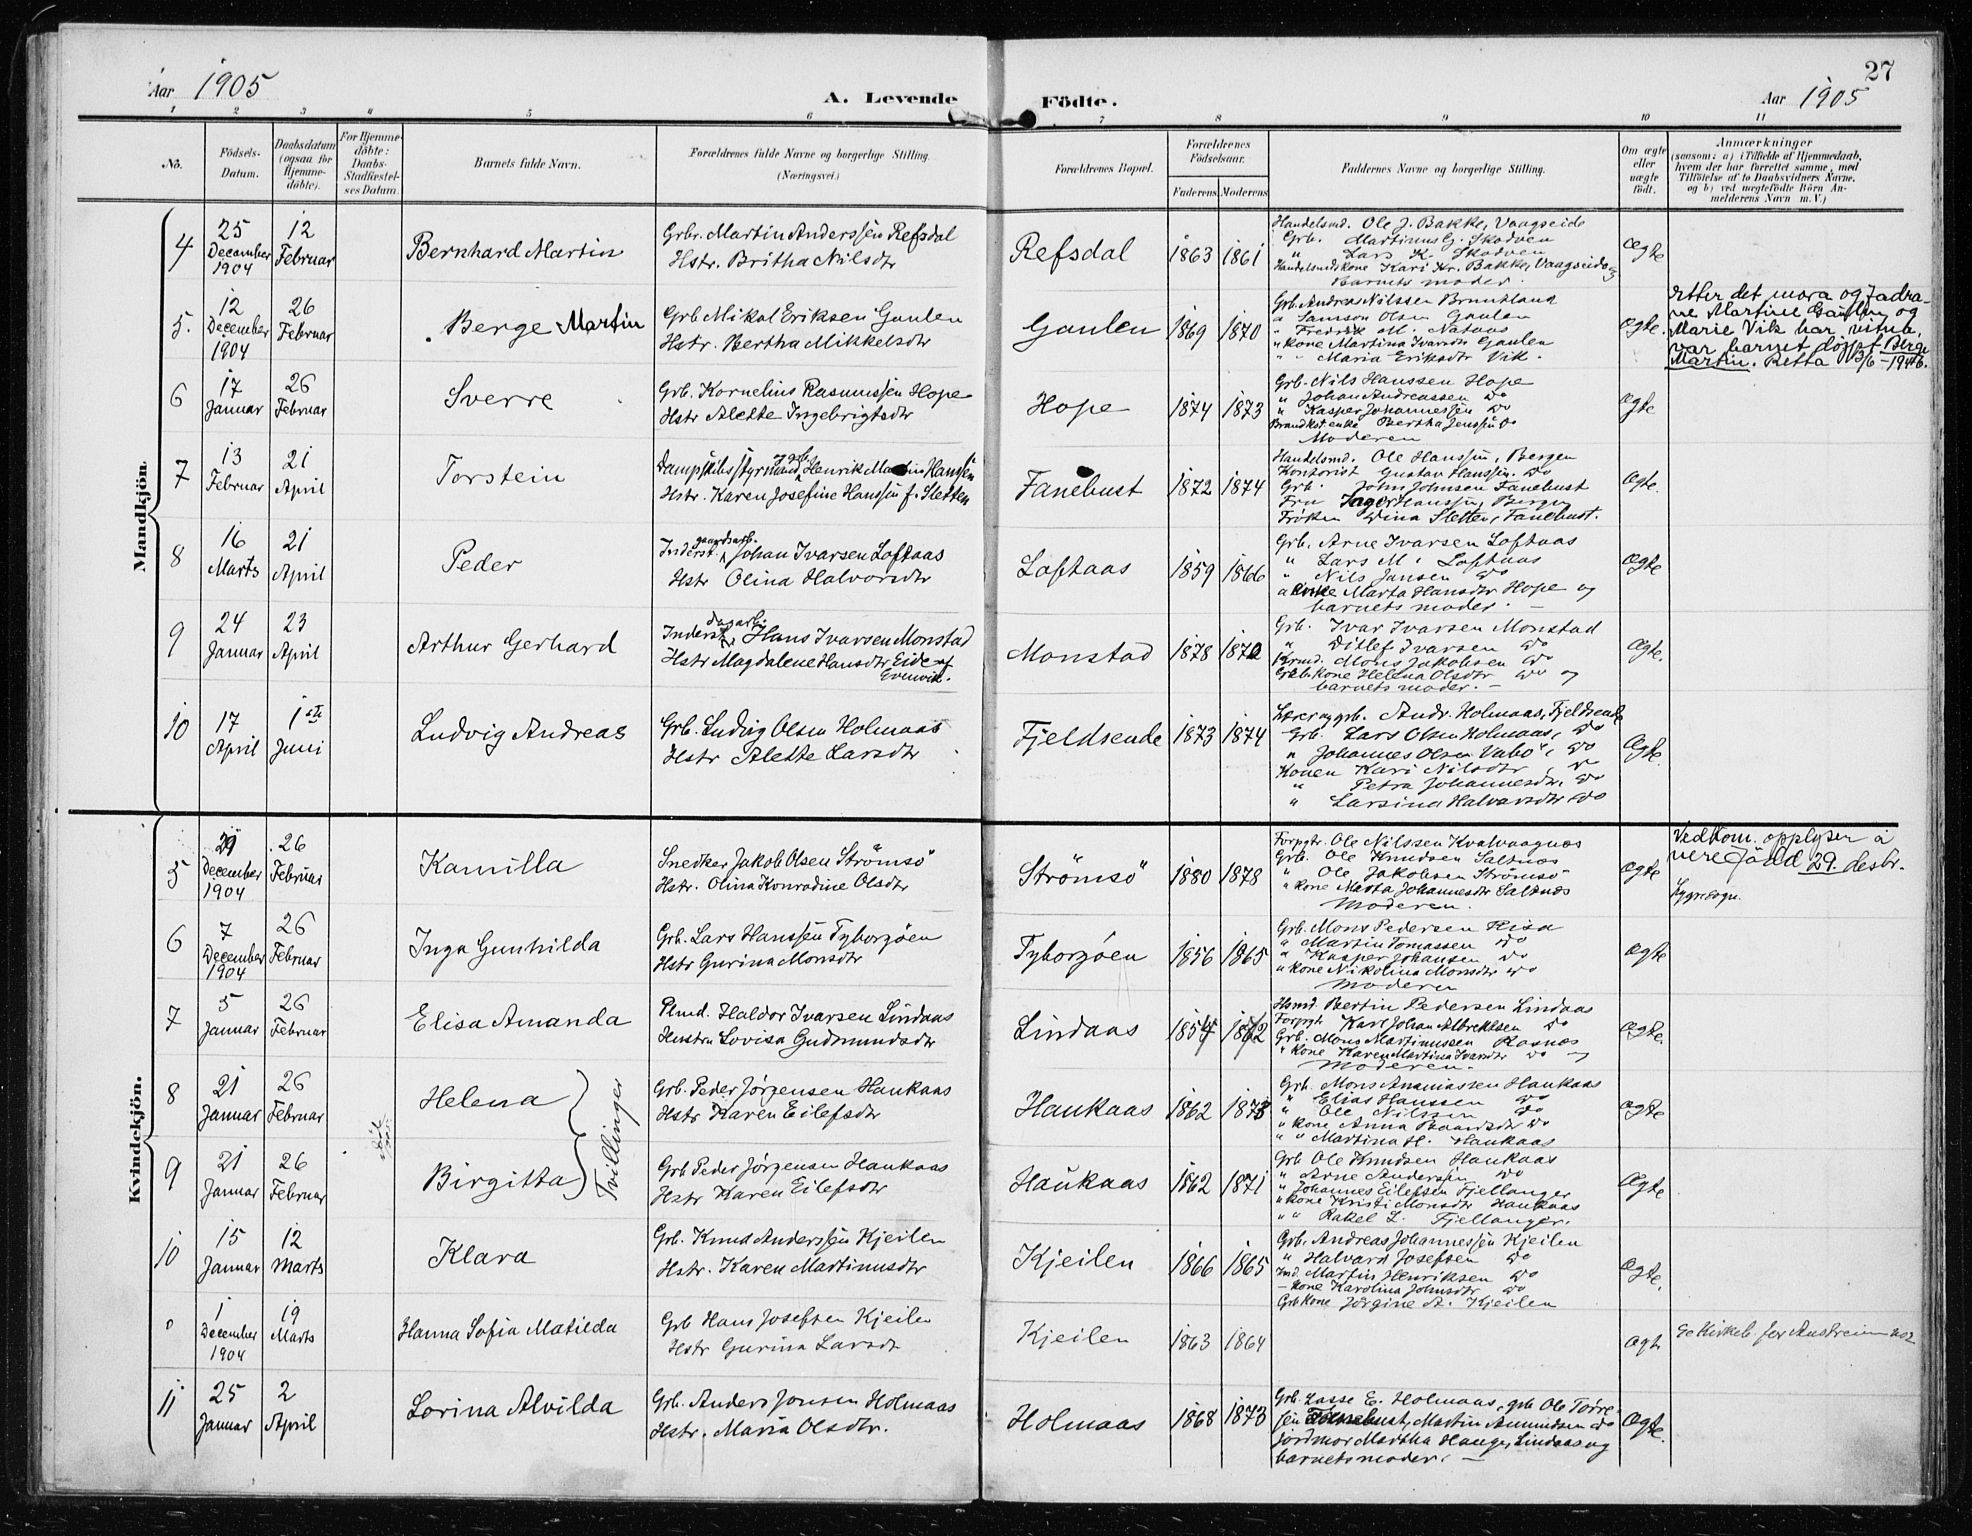 27
Aar 1905
A. Levende Födte.
Aar 1905
1 2 3 4 5 6 7 8 9 10 11
No.
Födsels-Datum.
Daabsdatum (ogsaa for Hjemme-döbte).
For Hjemme-döbte: Daabs-Stadfæstel-ses Datum.
Barnets fulde Navn.
Forældrenes fulde Navne og borgerlige Stilling. (Næringsvei.)
Forældrenes Bopæl.
Forældrenes Födselsaar.
Faderens Moderens
Faddernes Navne og borgerlige Stilling.
Om ægte eller uægte födt.
Anmærkninger
(saasom: a) i Tilfælde af Hjemmedaab,
hvem der har forrettet samme, med
Tilföielse af to Daabsvidners Navne,
og b) ved uægtefödte Börn An-
melderens Navn m. V.)
Mandkjön.
4
25 December 1904
12 Februar
Bernhard Martin
Grbr. Martin Anderssen Refsdal
Hstr. Britha Nilsdtr
Refsdal
1863 1861
Handelsmd. Ole J. Bakke, Vaagseide
Grb. Martinus G. Skodven
" Lars K. Skodven
Handelsmds kone Kari Kr. Bakke, Vaagseide og
Barnets moder.
Ægte
5.
12 December 1904
26 Februar
Berge Martin
Grb Mikal Eriksen Gaulen
Hstr. Bertha Mikkelsdtr
Gaulen
1869 1870
Grb. Andreas Nilssen Bruntland
" Samson Olsen Gaulen
" Fredrik M. Nataas
" kone Martina Ivarsdtr Gaulen
" " Maria Eriksdtr Vik.
Ægte.
Etter det mora og fadra-
ne Martine Gaulen og
Marie Vik har vitna,
var barnet döypt Berge
Martin. Retta 13/6-1946.
6
17 Januar
26 Februar
Sverre
Grb. Kornelius Rasmussen Hope
Hstr Alette Ingebrigtsdtr
Hope
1874 1873
Grb. Nils Hanssen Hope
" Johan Andreassen do
" Kasper Johannessen do
Bertha Jenssen do
Moderen
Ægte
7
13 Februar
21 April
Torstein
Dampskibsstyrmand Henrik Martin Hanssen
Hstr. Karen Josefine Hanssen f. Sletten
Fanebust
1872 1874
Handelsmd. Ole Hanssen, Bergen
Kontorist Gustav Hanssen. do
Grb. John Johnsen Fanebust
Fru Inger Hanssen, Bergen
Fröken Dina Sletten, Fanebust.
Ægte.
8
16 Marts
21 April
Peder
Inderst. gaardsarb. Johan Ivarsen Loftaas
Hstr Olina Halvorsdtr
Loftaas
1859 1866
Grb. Arne Ivarsen Loftaas
" Lars M. Loftaas
" Nils Jansen do
" Enke Marta Hansdtr Hope og
barnets moder. —
Ægte
9
24 Januar
23 April
Arthur Gerhard
Inderst, dagarb. Hans Ivarsen Monstad
Hstr Magdalene Hansdtr Eide af
Evenvik.
Monstad
1878 1872
Grb. Ivar Ivarsen Monstad
" Ditlef Ivarsen do
Mons Jakobsen do
Grbkone Helena Olsdtr do og
barnets moder. —
Ægte.
10
17 April
1ste Juni
Ludvig Andreas
Grb. Ludvig Olsen Holmaas
Hstr Alette Larsdtr
Fjeldsende
1873 1874
Lærer og grb. Andr. Holmaas, Fjeldsende
Grb. Lars Olsen Holmaas, do
" Johannes Olsen Vabö, do
Konen Kari Nilsdtr do
" Petra Johannesdtr. do
" Larsina Halvarsdtr do
Ægte.
Kvindekjön.
5
29 December 1904
26 Februar
Kamilla
Snedker Jakob Olsen Strömsö
Hstr. Olina Konradine Olsdtr
Strömsö
1880 1878
Forpgtr. Ole Nilssen Kvalvaagnæs
Grb. Ole Knudsen Saltnæs
" Ole Jakobsen Strömsö
" kone Marta Johannesdtr Saltnæs
Moderen.
Ægte
Vedkom. opplyser å
vere född 29. desbr.
6
7 December 1904
26 Februar
Inga Gunhilda
Grb. Lars Hanssen Tyborgöen
Hstr Gurina Monsdtr
Tyborgöen
1856 1865
Grb. Mons Pedersen Risa
" Martin Tomassen do
" Kasper Johansen do
" kone Nikolina Monsdtr do
Moderen
Ægte
7
5 Januar
26 Februar
Elisa Amanda
Plmd. Haldor Ivarsen Lindaas
Hustru Lovisa Gudmundsdtr
Lindaas
1854 1862
Hsmd. Bertin Pedersen Lindaas
Forpgtr Karl Johan Albrektsen do
Grb. Mons Martinussen Rosnæs
" kone Karen Martina Ivarsdtr do og
Moderen.
Ægte.
8
21 Januar
26 Februar
Helena
Tvillinger
Grb. Peder Jörgensen Haukaas
Hstr Karen Eilefsdtr
Haukaas
1862 1871
Grb. Mons Ananiassen Haukaas
" Elias Hanssen do
" Ole Nilssen do
" kone Anna Baardsdtr do
" " Martina H. Haukaas
Ægte
9
21 Januar
26 Februar
Birgitta
Grb Peder Jörgensen Haukaas
Hstr Karen Eilefsdtr
Haukaas
1862 1871
Grb Ole Knudsen Haukaas
" Arne Anderssen do
" Johannes Eilefsen Fjellanger
" kone Kristi Monsdtr Haukaas
" " Rakel L. Fjellanger.
Ægte
10
15 Januar
12 Marts
Klara
Grb. Knud Anderssen Kjeilen
Hstr. Karen Martinusdtr
Kjeilen
1866 1865
Grb. Andreas Johannessen Kjeilen
" Halvard Josefsen do
Ind. Martin Henriksen do
- kone Karolina Johnsdtr do
Grb kone Jörgine A. Kjeilen
Ægte.
1 December 1904
19 Marts
Hanna Sofia Matilda
Grb Hans Josefsen Kjeilen
Hstr Gurina Larsdtr
Kjeilen
1863 1864
Ægt
Se Kirkeb. for Austreim
11
25 Januar
2 April
Lorina Alvilda
Grb. Anders Jonsen Holmaas
Hstr. Maria Olsdtr.
Holmaas
1868 1873
Grb. Lasse E. Holmaas, grb Ole Torre-
sen Fanebust, Martin Amundsen do
jordmor Martha Hauge, Lindaas og
barnets moder. —
Ægte.